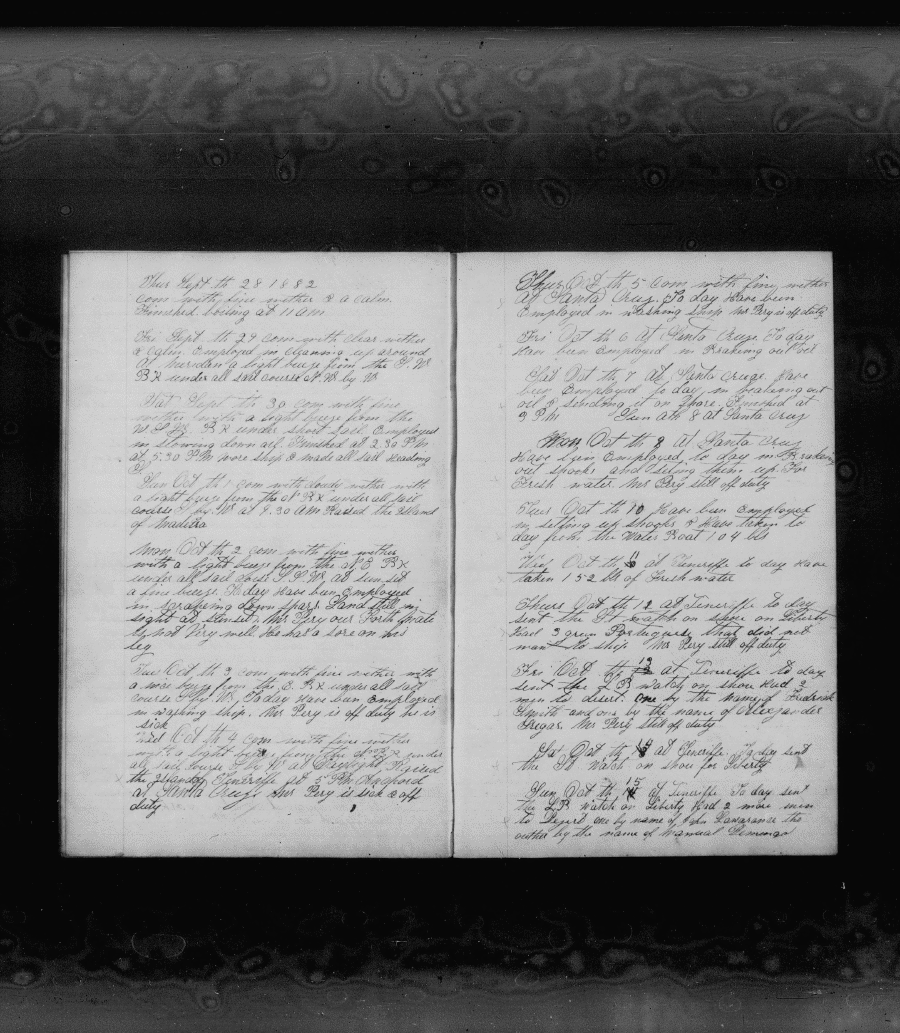 Thur Sept th 28 1882
Com with fine wether & a calm
Finished boiling at 11 AM
Fri Sept th 29 com with clear wether
a calm Employed in cleaning up around
At meridan a light breze from the S. W
Bx under all sail course N. W by W
Sat Sept th 30 com with fine
wether with a light breze from the
W S. W. Bx under short sail Employed
in stowing down oil Finished at 2.30 P M
at 5.30 P M wore ship & made all sail Heading
S
Sun Oct th 1 com with cloudy wether with
a light breze from the N Bx under all sail
course S by W at 9.30 AM Raised the Island
of Madeira
Mon Oct th 2 com with fine wether
with a light breze from the N. E Bx
under all sail Cours S. S. W. at sun set
a fine breze. To day Have been employed
in scrapeing down spars Land still in
sight at Sunset Mr Pery our Forth mate
is not Very well He has a sore on his
leg
Tue Oct th 3 com with fine wether with
a nice breze from the E. Bx under all sail
course S by W. To day Have ben Employed
in washing ship. Mr Pery is off duty he is
sick
Wed Oct th 4 com with fine wether
with a light breze from the N Bx under
all sail Course S by W at Daylight Raised
the Island Teneriffe at 5 P M Anchord
at Santa Cruz. Mr Pery is sick & off
duty
Thur Oct th 5 com with fine wether
At Santa Cruz. To day Have been
Employed in washing ship Mr Pery is off duty
Fri Oct th 6 At Santa Cruze To day
Have been Employed in Braking out oil
Sat Oct th 7 At Santa Cruze. Have
been Employed to day in breaking out
oil & sending it on Shore. Finished at
3 P M Sun Oth 8 at Santa Cruz
Mon Oct th 9 At Santa Cruz
Have been Employed to day in Braking
out shooks and Seting them up For
Fresh water Mr Pery still off duty
Tuer Oct th 10 Have been Employed
in setting up Shooks & Have taken to
day from the Water Boat 104 bls
Wen Oct th 11 at Teneriffe to day Have
taken 152 bls of Fresh water
Thurs Oct th 12 at Teneriffe to day
sent the St watch on shore on Liberty
Had 3 green Portuguese that did not
want to ship. Mr Pery still off duty
Fri Oct th 13 at Teneriffe to day
sent the LB Watch on shore Had 2
men to desert. one by the name of Fredrick
Smith and one by the name of Alexzander
Mr Pery still off duty
Sat Oct th 14 at Teneriffe. To day sent
the St watch on shore for Liberty
Sun Oct th 15 at Teneriffe To day sent
the LB watch on Liberty Had 2 more men
to Desert one by name of John Lawarance the
outher by the name of Manuel